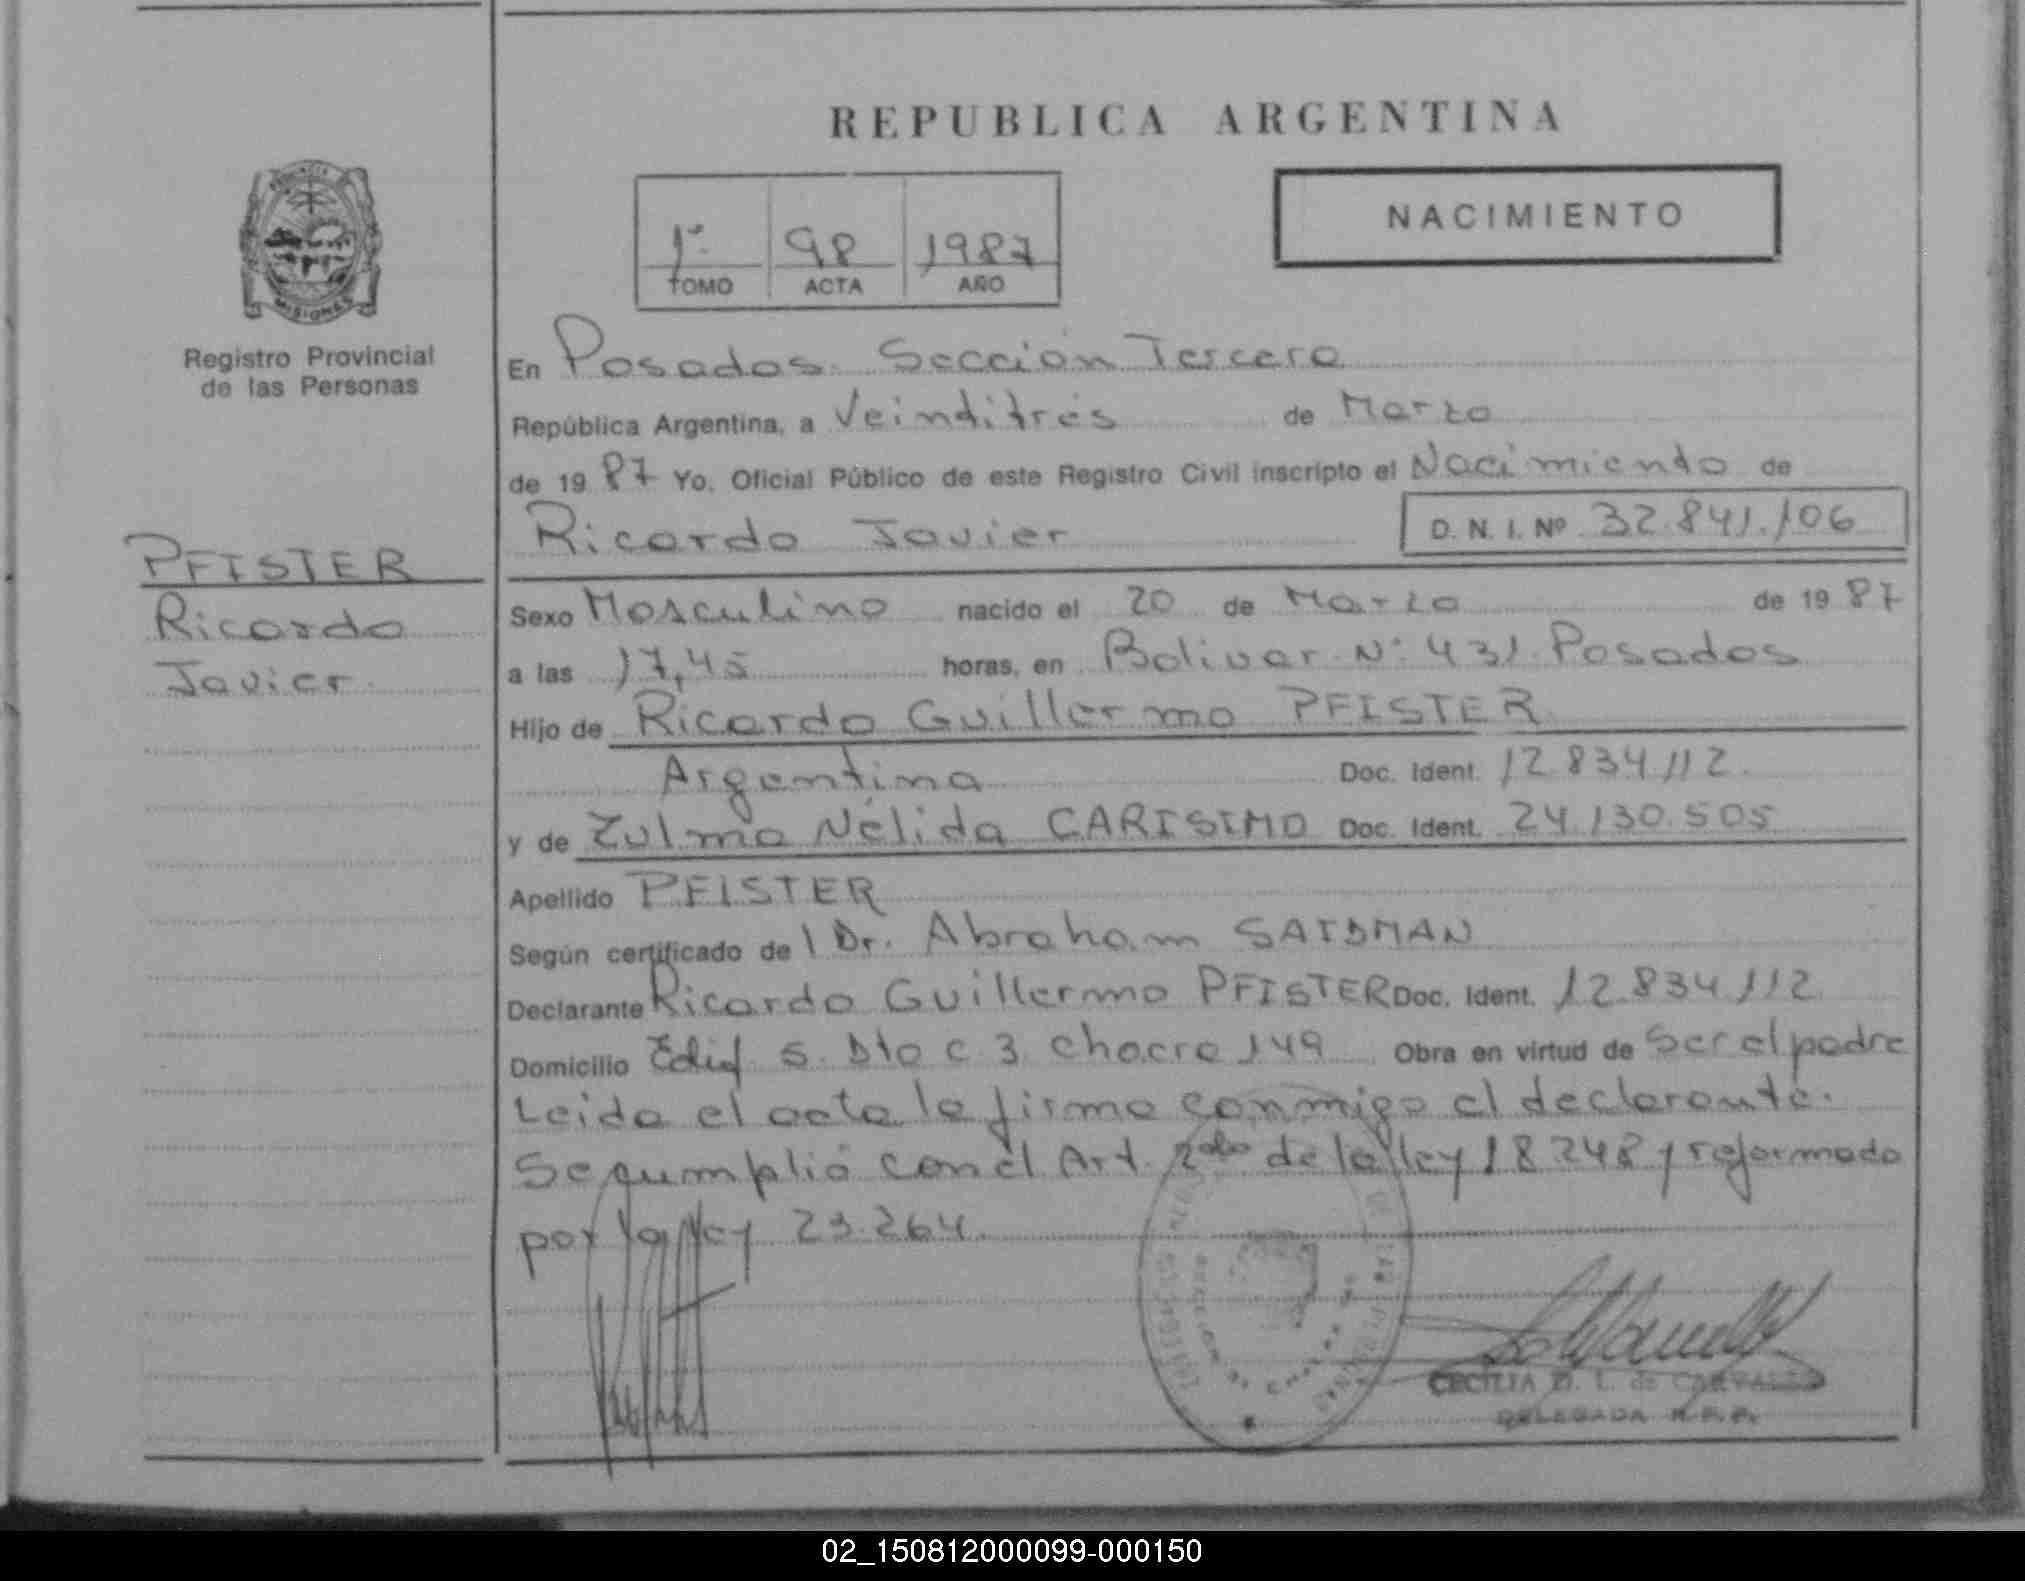 REPUBLICA ARGENTINA
NACIMIENTO
1º 98 1987
TOMO ACTA AÑO
MISIONES
Registro Provincial
de las Personas
PFISTER
Ricardo
Javier
En Posadas. Sección Tercera
República Argentina, a Veinditrés de Marzo
de 19 87 Yo. Oficial Público de este Registro Civil inscripto el Nacimiento de
Ricardo Javier D. N. I. Nº 32.841.106
Sexo Masculino nacido el 20 de Marzo de 19 87
a las 17,45 horas, en Bolivar Nº 431 Posadas
Hijo de Ricardo Guillermo PFISTER
Argentina Doc. Ident. 12.834.112.
y de Zulma Nélida CARISIMO Doc. Ident. 24.130.505
Apellido PFISTER
Según certificado de l Dr. Abraham SAIDMAN
Declarante Ricardo Guillermo PFISTER Doc. Ident. 12.834.112
Domicilio Edif 5. Dto C 3 chacra 149 Obra en virtud de Ser el padre
Leida el acta la firma conmigo el declarante.
Se cumplió con el Art. 2do de la ley 18248 y reformado
por la ley 23.264.
CECILIA de CARVALLO
DELEGADA R.P.P.
02_150812000099-000150